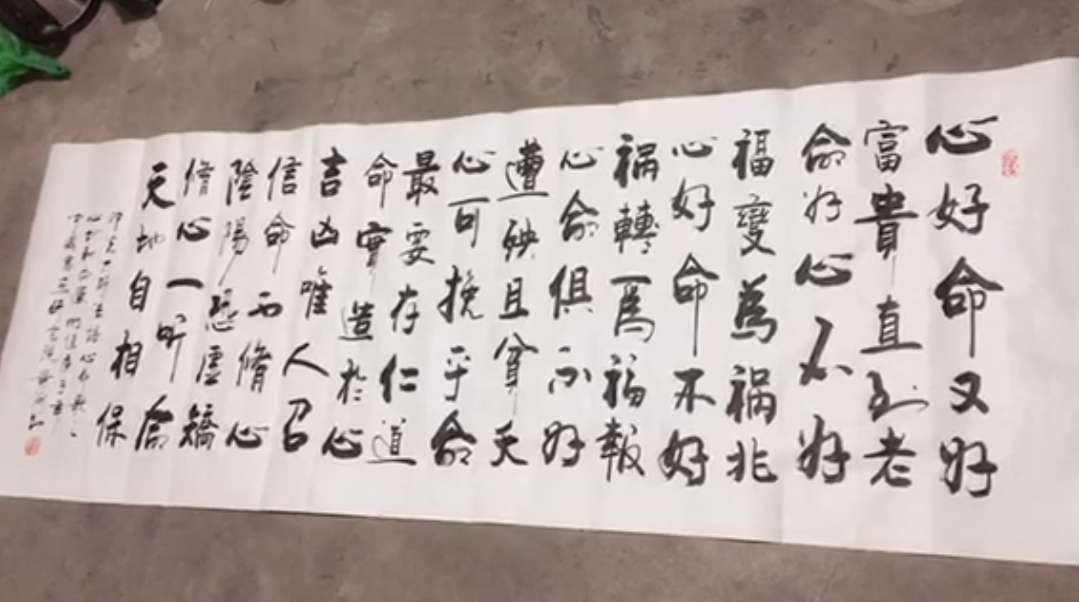 心好命又好
富貴直到老
命好心不好
福變爲禍兆
心好命不好
禍轉爲福報
心命俱不好
遭殃且貧夭
心可挽乎命
最要存仁道
命實造於心
吉凶唯人召
信命不脩心
陰陽恐虛矯
脩心一听命
天地自相保